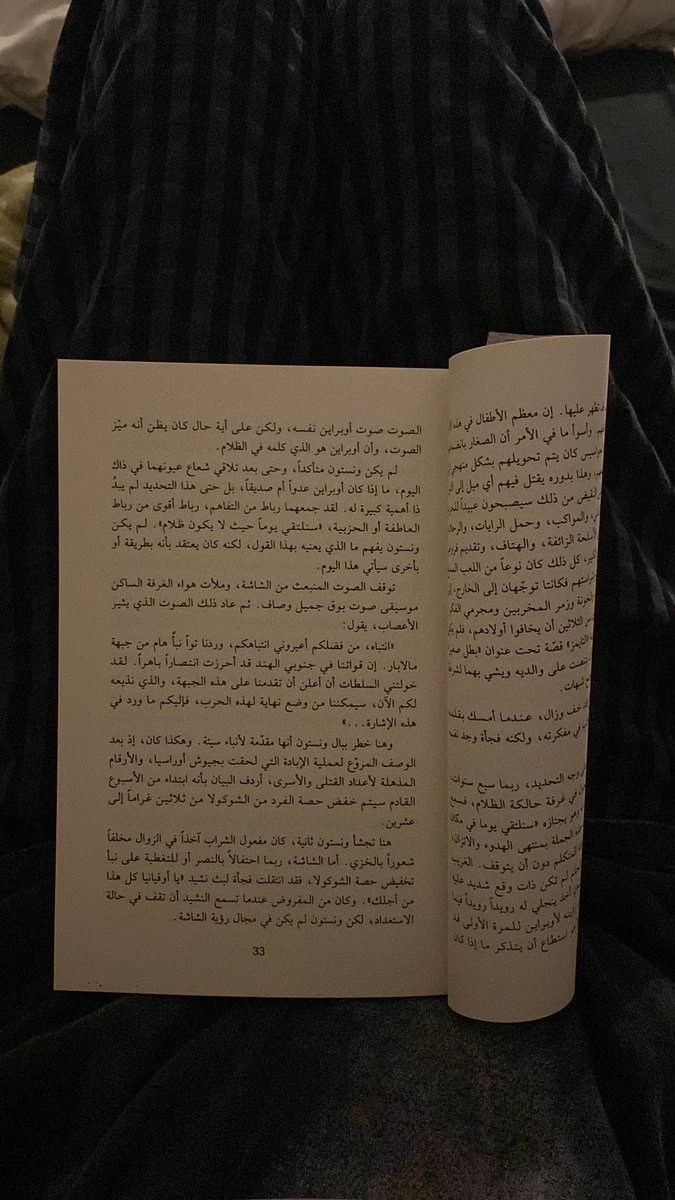 تظهر عليها. إن معظم الأطفال في هذه
وأسوأ ما في الأمر أن الصغار
كان يتم تحويلهم بشكل منهجي
وهذا بدوره يقتل فيهم أي ميل إلى
النقيض من ذلك سيصبحون عبيداً
والمواكب، وحمل الرايات،
الزائفة، والهتاف، وتقديم
كل ذلك كان نوعاً من اللعب
فكانتا توجّهان إلى الخارج،
الخونة وزمر المخربين ومجرمي
الثلاثين أن يخافوا أولادهم، فلم
قصّة تحت عنوان «بطل
على والديه ويشي بهما
شبهات.
خف وزال، عندما أمسك
في مفكرته، ولكنه فجأة وجد
وجه التحديد، ربما سبع سنوات،
في غرفة حالكة الظلام، فسمع
وهو يجتازه «سنلتقي يوما في مكان
الجملة بمنتهى الهدوء والاتزان،
المتكلم دون أن يتوقف. الغريب
لم تكن ذات وقع شديد عليه
أخذ ينجلي له رويداً رويداً فيما
لأوبراين للمرة الأولى
استطاع أن يتذكر ما إذا كان
الصوت صوت أوبراين نفسه، ولكن على أية حال كان يظن أنه ميّز
الصوت، وأن أوبراين هو الذي كلمه في الظلام.
لم يكن ونستون متأكداً، وحتى بعد تلاقي شعاع عيونهما في ذاك
اليوم، ما إذا كان أوبراين عدواً أم صديقاً، بل حتى هذا التحديد لم يبدُ
ذا أهمية كبيرة له. لقد جمعهما رباط من التفاهم، رباط أقوى من رباط
العاطفة أو الحزبية، «سنلتقي يوماً حيث لا يكون ظلام». لم يكن
ونستون يفهم ما الذي يعنيه بهذا القول، لكنه كان يعتقد بأنه بطريقة أو
بأخرى سيأتي هذا اليوم.
توقف الصوت المنبعث من الشاشة، وملأت هواء الغرفة الساكن
موسيقى صوت بوق جميل وصاف. ثم عاد ذلك الصوت الذي يثير
الأعصاب، يقول:
«انتباه، من فضلكم أعيروني انتباهكم، وردنا تواً نبأٌ هام من جبهة
مالابار. إن قواتنا في جنوبي الهند قد أحرزت انتصاراً باهراً. لقد
خولتني السلطات أن أعلن أن تقدمنا على هذه الجبهة، والذي نذيعه
لكم الآن، سيمكننا من وضع نهاية لهذه الحرب، فإليكم ما ورد في
هذه الإشارة...»
وهنا خطر ببال ونستون أنها مقدّمة لأنباء سيئة. وهكذا كان، إذ بعد
الوصف المروّع لعملية الإبادة التي لحقت بجيوش أوراسيا، والأرقام
المذهلة لأعداد القتلى والأسرى، أردف البيان بأنه ابتداء من الأسبوع
القادم سيتم خفض حصة الفرد من الشوكولا من ثلاثين غراماً إلى
عشرين.
هنا تجشأ ونستون ثانية، كان مفعول الشراب آخذاً في الزوال مخلفاً
شعوراً بالخزي. أما الشاشة، ربما احتفالاً بالنصر أو للتغطية على نبأ
تخفيض حصة الشوكولا، فقد انتقلت فجأة لبث نشيد «يا أوقيانيا كل هذا
من أجلك». وكان من المفروض عندما تسمع النشيد أن تقف في حالة
الاستعداد، لكن ونستون لم يكن في مجال رؤية الشاشة.
33